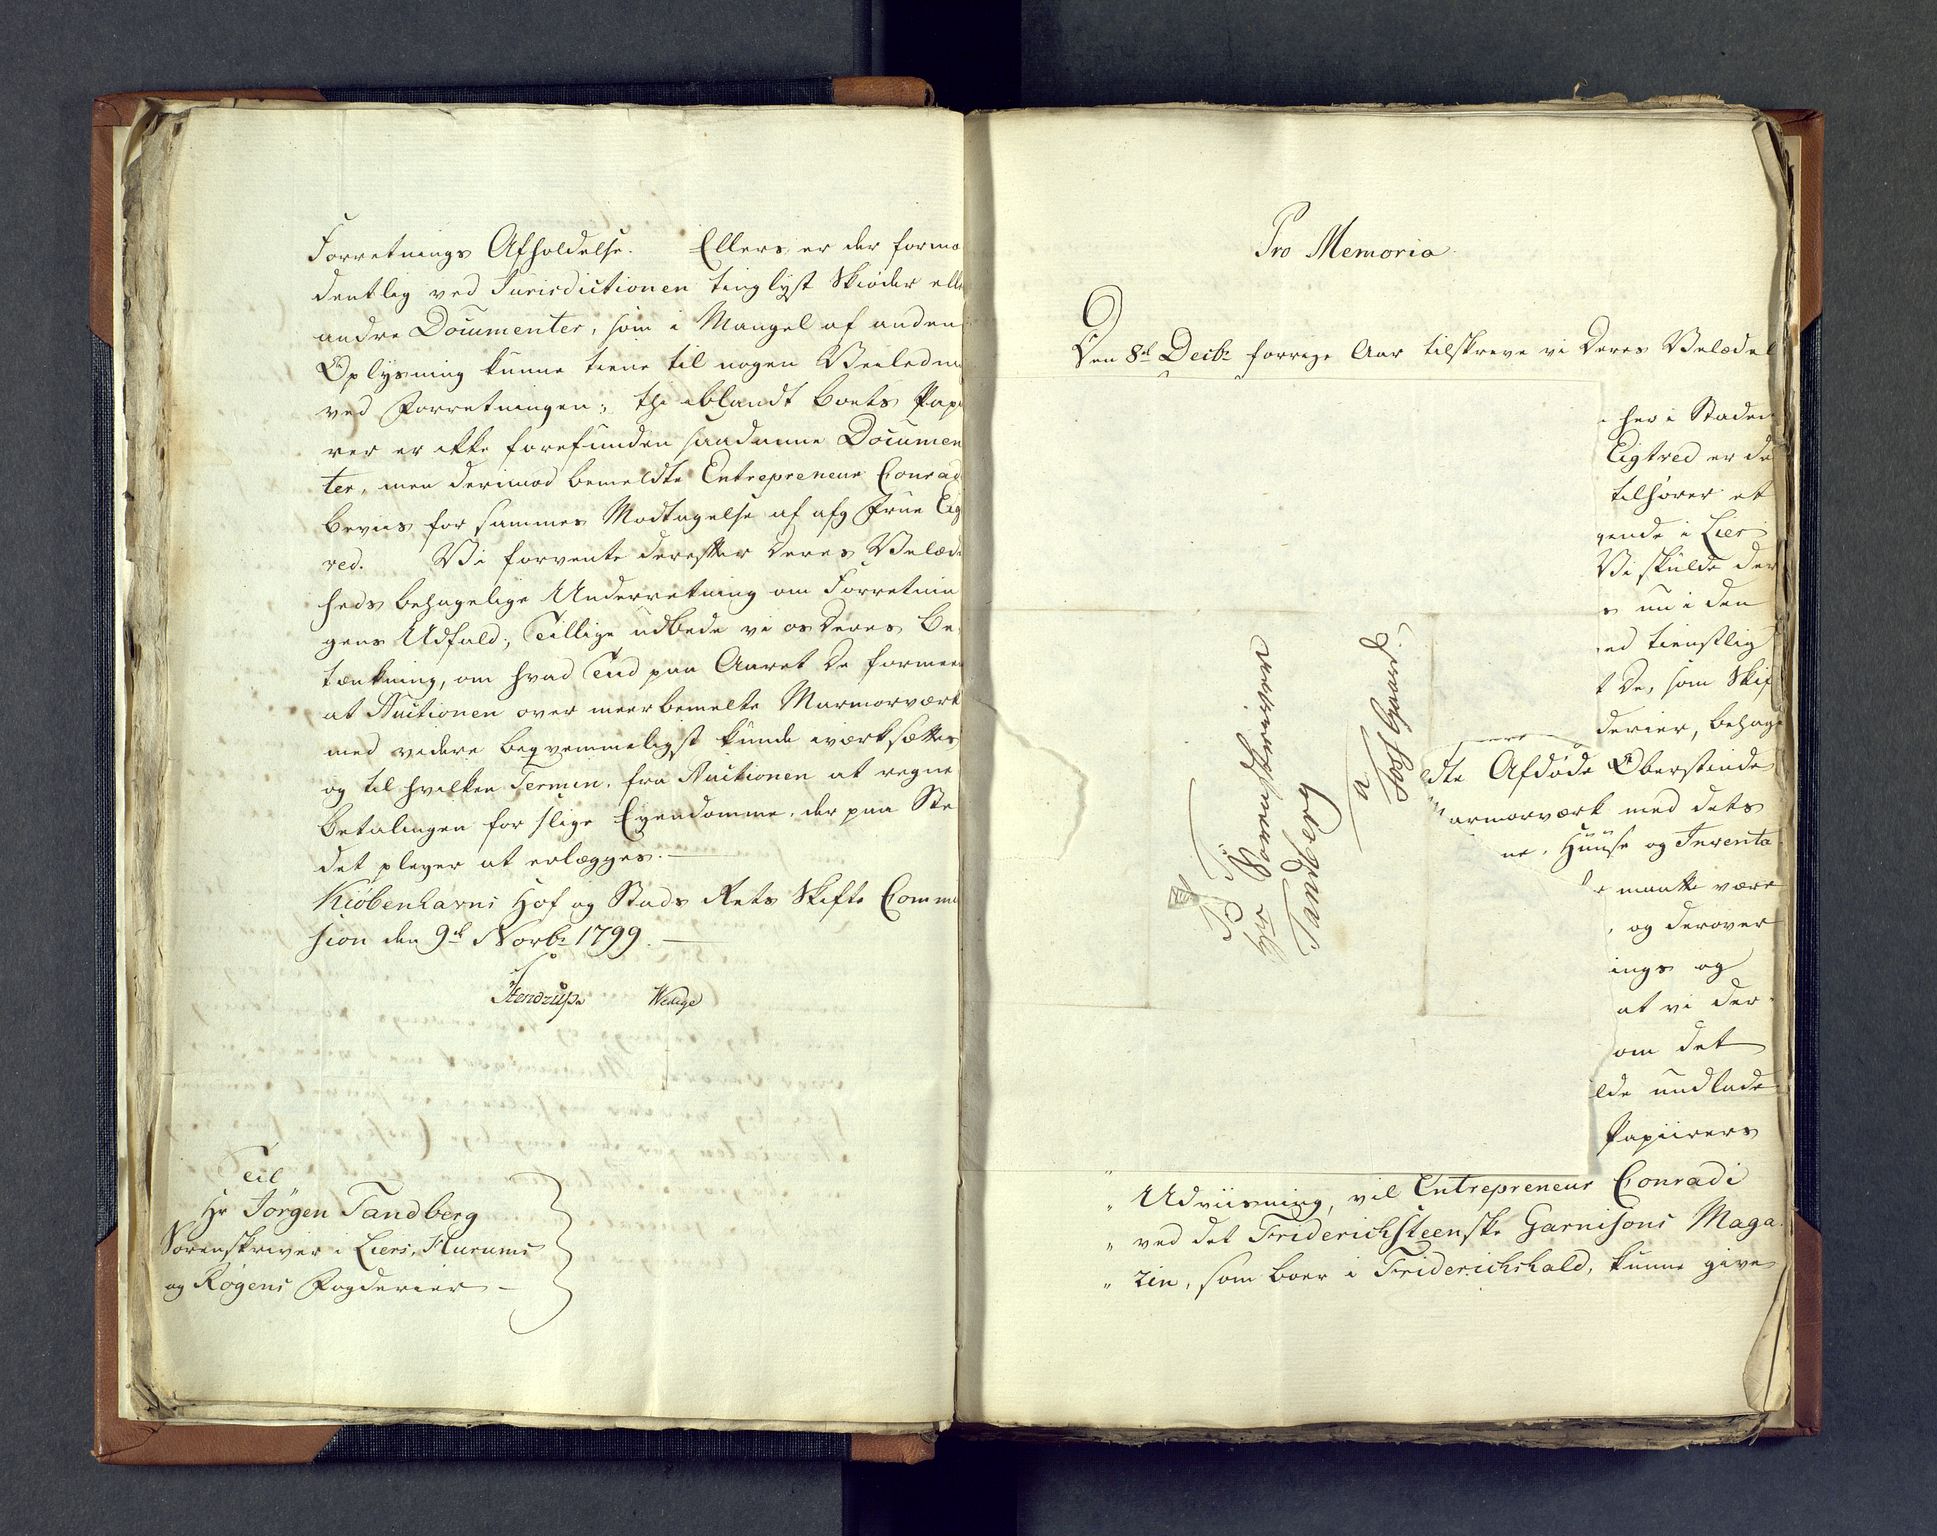 Forretnings Afholdelse. Ellers er der formo
dentlig ved Jurisdictionen tinglyst Skiøder elle
andre Documenter, som i Mangel af anden
Oplysning kunne tiene til nogen Veiledni
ved Forretningen; thi iblandt Boets Papi
rer er ikke forefunden saadanne Documen
ter, men derimod bemeldte Entrepreneur Conrad
beviis for sammes Modtagelse af afg Frue Lig
red. Vi forvente derefter Deres Velæd
heds behagelige Underretning om Forretnin
gens Udfald; Tillige udbede vi os Deres Be
tænkning, om hvad Tid paa Aaret De formee
at Auctionen over meerbemelte Marmorværk
med videre beqvemmeligst kunde iværksættes
og til hvilken Termin, fra Auctionen at regne
Betalingen for slige Eyendomme, der paa Ste
det pleyer at erlægges.
Kiöbenhavns Hof og Stads Rets Skifte Commi
sion den 9de Novbr 1799.
Stendrup Wenge
Til
Hr Jörgen Tandberg
Sorenskriver i Liers, Hurums
og Røgens Fogderier
Pro Memoria
Den 8de Decbr forrige Aar tilskreve vi Deres Velædel
her i Staden
Ligtred er de
tilhører et
gende i Lier
Vi skulde der
s nu i den
ed tienstlig
t De, som Skif
derier, behage
dte Afdøde Oberstinde
armorværk med dets
ne, Huuse og Inventa
r maatte være
, og derover
ings og
at vi der
om det
lde undlade
Papiirers
" Udviisning, vil Entrepreneur Conradi
" ved det Friderichsteenske Garnisons Maga
" zin, som boer i Friderichshald, kunne give
Til
Hr Sorenskriver
Tandberg
a
Foss Gaard.